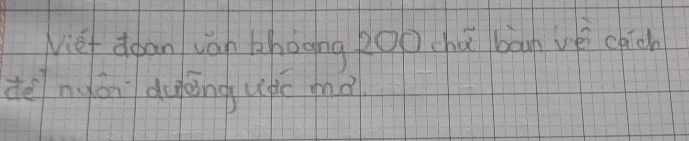 Viết đoạn văn khoảng 200 chữ bàn về cách
để nuôi dưỡng ước mơ.